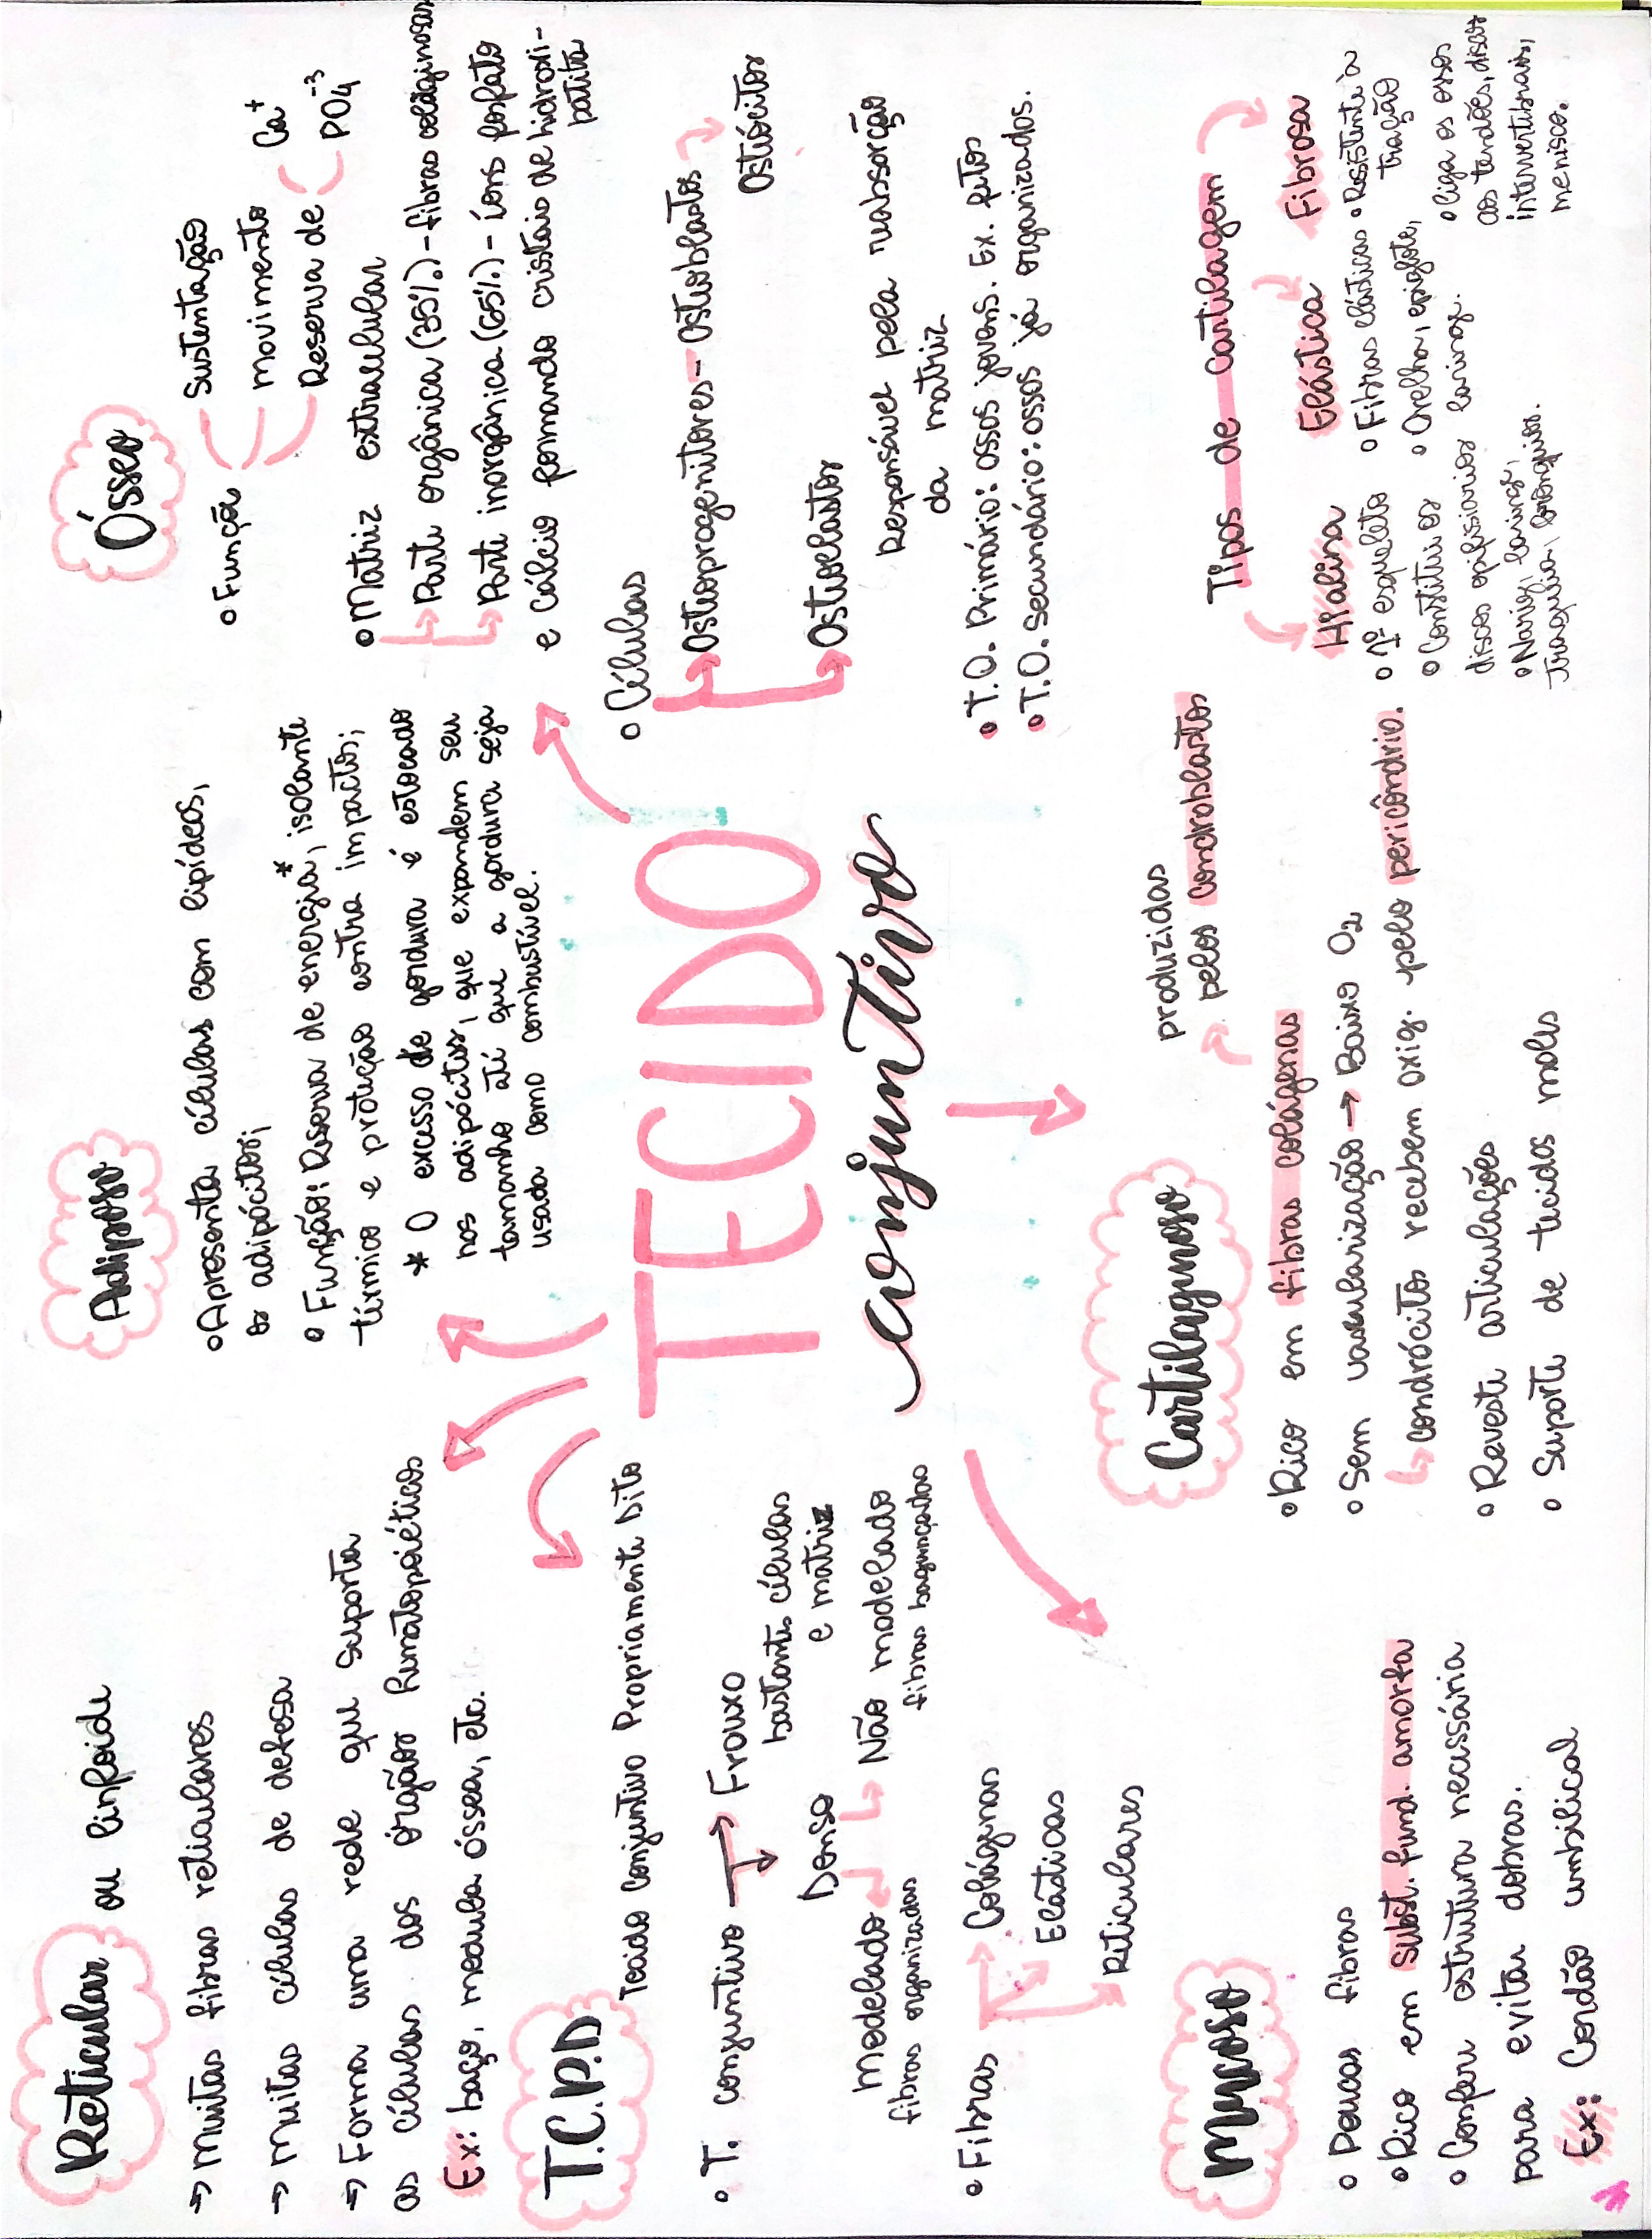 TECIDO
conjuntivo
Reticular ou linfoide
→ Muitas fibras reticulares
→ Muitas células de defesa
→ Forma uma rede que suporta
as células dos órgãos hematopoiéticos
Ex: baço, medula óssea, etc.
T.C.P.D Tecido Conjuntivo Propriamente Dito
• T. conjuntivo → Frouxo
bastante células
e matriz
Denso
Modelado
fibras organizadas
Não modelado
fibras bagunçadas
• Fibras → Colágenas
Elásticas
Reticulares
Mucoso
• Poucas fibras
• Rico em subst. fund. amorfa
• Confere estrutura necessária
para evitar dobras.
Ex: Cordão umbilical
Adiposo
• Apresenta células com lipídeos,
os adipócitos;
• Função: Reserva de energia*, isolante
térmico e proteção contra impactos;
* O excesso de gordura é estocado
nos adipócitos, que expandem seu
tamanho até que a gordura seja
usada como combustível.
Cartilaginoso
produzidas
pelos condroblastos
• Rico em fibras colágenas
• Sem vascularização → Baixo O2
↳ condrócitos recebem oxig. pelo pericôndrio.
• Reveste articulações
• Suporte de tecidos moles
Ósseo
• Função
Sustentação
movimento
Reserva de
Ca+
PO4-3
• Matriz extracelular
→ Parte orgânica (35%) - fibras colaginosas
→ Parte inorgânica (65%) - íons fosfato
e cálcio formando cristais de hidroxi-
patita
• Células
→ Osteoprogenitores - Osteoblastos
Osteócitos
→ Osteoclastos
Responsável pela reabsorção
da matriz
• T.O. Primário: ossos jovens. Ex. fetos
• T.O. secundário: ossos já organizados.
Tipos de cartilagem
Hialina
• 1º esqueleto
• Constitui os
discos epifisiários
• Nariz, laringe,
traquéia, brônquios.
Elástica
• Fibras elásticas
• Orelha, epiglote,
laringe.
Fibrosa
• Resistente à
tração
• Liga os ossos
aos tendões, discos
intervertebrais,
menisco.